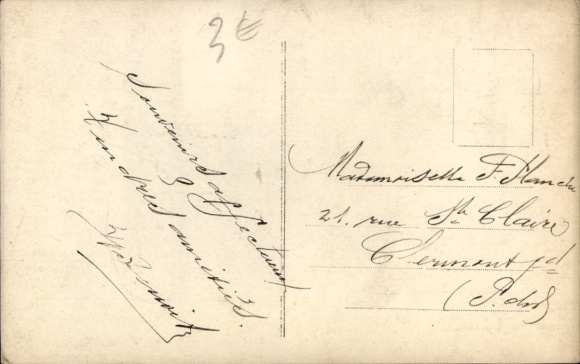 3€
Souvenirs affectueux
& tendres amitiés.
Mademoiselle F. Planche
21. rue Ste Claire
Clermont fd
(P. de d)